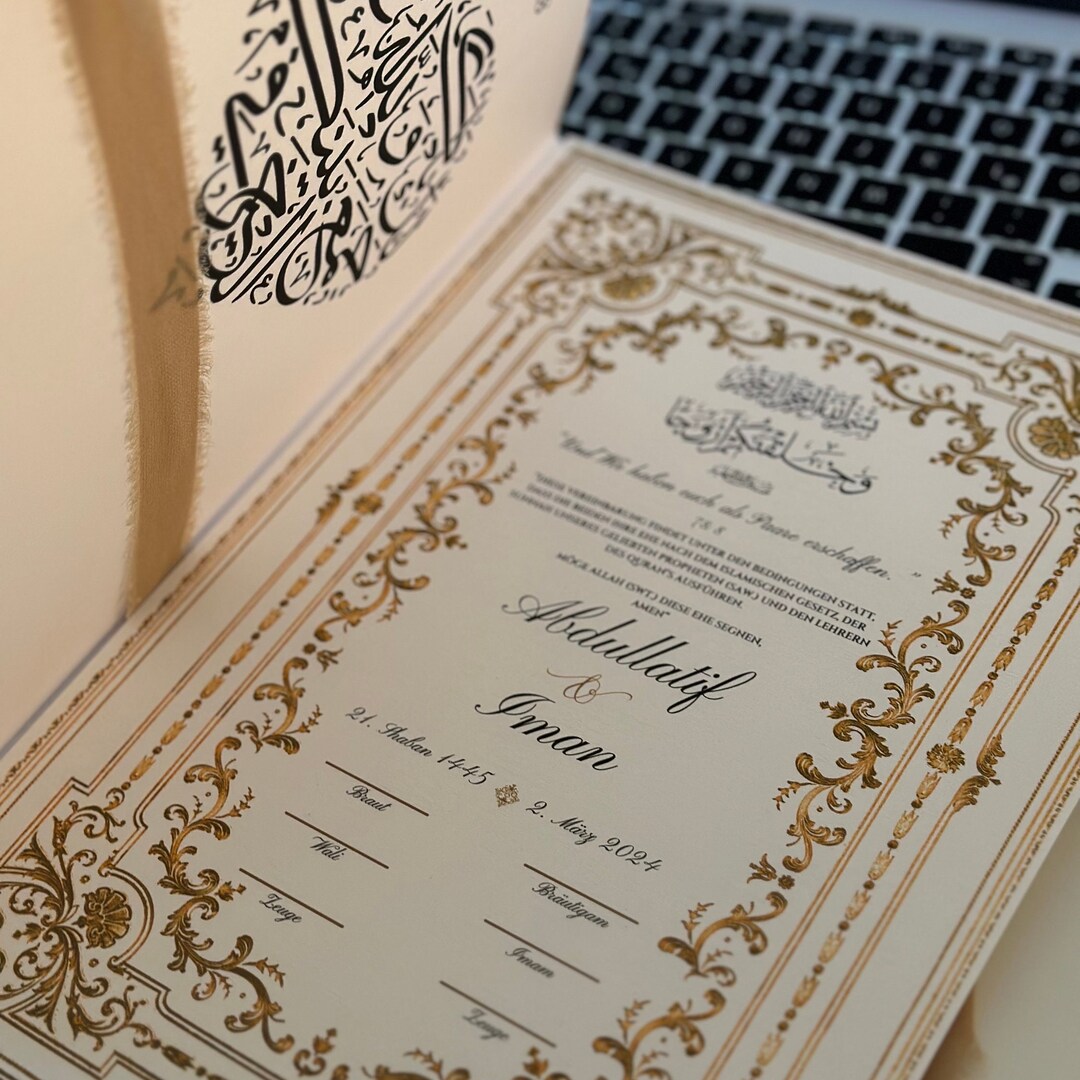 بسم الله الرحمن الرحيم
وخلقناكم ازواجا
"Und Wir haben euch als Paare erschaffen. "
78:8
"DIESE VEREINBARUNG FINDET UNTER DEN BEDINGUNGEN STATT,
DASS DIE BEIDEN IHRE EHE NACH DEM ISLAMISCHEN GESETZ, DER
SUNNAH UNSERES GELIEBTEN PROPHETEN (SAW.) UND DEN LEHRERN
DES QURAN'S AUSFÜHREN.
MÖGE ALLAH (SWT.) DIESE EHE SEGNEN,
AMEN"
Abdullatif
&
Iman
21. Shaban 1445 2. März 2024
Braut
Wali
Zeuge
Bräutigam
Imam
Zeuge